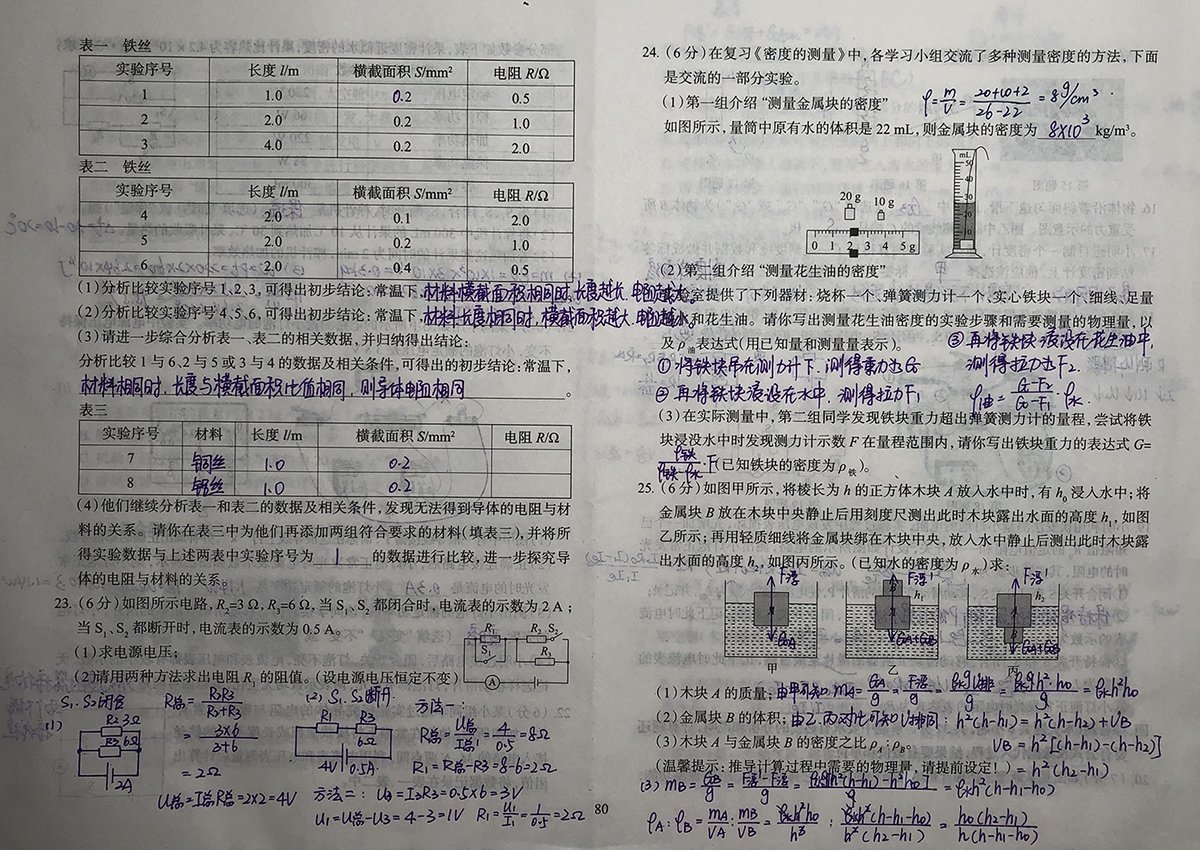 表一 铁丝
实验序号 长度 l/m 横截面积 S/mm² 电阻 R/Ω
1 1.0 0.2 0.5
2 2.0 0.2 1.0
3 4.0 0.2 2.0
表二 铁丝
实验序号 长度 l/m 横截面积 S/mm² 电阻 R/Ω
4 2.0 0.1 2.0
5 2.0 0.2 1.0
6 2.0 0.4 0.5
(1)分析比较实验序号1、2、3,可得出初步结论:常温下,材料横截面积相同时,长度越长,电阻越大。
(2)分析比较实验序号4、5、6,可得出初步结论:常温下,材料长度相同时,横截面积越大,电阻越小。
(3)请进一步综合分析表一、表二的相关数据,并归纳得出结论:
分析比较1与6、2与5或3与4的数据及相关条件,可得出的初步结论:常温下,
材料相同时,长度与横截面积比值相同,则导体电阻相同。
表三
实验序号 材料 长度 l/m 横截面积 S/mm² 电阻 R/Ω
7 铜丝 1.0 0.2
8 铝丝 1.0 0.2
(4)他们继续分析表一和表二的数据及相关条件,发现无法得到导体的电阻与材
料的关系。请你在表三中为他们再添加两组符合要求的材料(填表三),并将所
得实验数据与上述两表中实验序号为 1 的数据进行比较,进一步探究导
体的电阻与材料的关系。
23.(6分)如图所示电路,R₂=3 Ω,R₃=6 Ω,当S₁、S₂都闭合时,电流表的示数为2 A;
当S₁、S₂都断开时,电流表的示数为0.5 A。
(1)求电源电压;
(2)请用两种方法求出电阻R₁的阻值。(设电源电压恒定不变)
R₁ R₂ S₂
S₁ R₃
A
S₁.S₂闭合
(1)
R₂ 3Ω
R₃ 6Ω
2A
R总=R₂R₃/(R₂+R₃)
=3×6/(3+6)
=2Ω
U总=I总R总=2×2=4V
(2) S₁ S₂断开
R₁ R₃
6Ω
4V 0.5A
方法一:
R总=U总/I总'=4/0.5=8Ω
R₁=R总-R₃=8-6=2Ω
方法二:U₃=I₃R₃=0.5×6=3V
U₁=U总-U₃=4-3=1V R₁=U₁/I₁=1/0.5=2Ω
80
24.(6分)在复习《密度的测量》中,各学习小组交流了多种测量密度的方法,下面
是交流的一部分实验。
(1)第一组介绍“测量金属块的密度” ρ=m/V=(20+10+2)/(26-22)=8g/cm³.
如图所示,量筒中原有水的体积是22 mL,则金属块的密度为 8×10³ kg/m³。
20 g 10 g
0 1 2 3 4 5 g
mL
50
40
30
20
10
(2)第二组介绍“测量花生油的密度”
实验室提供了下列器材:烧杯一个、弹簧测力计一个、实心铁块一个、细线、足量
的水和花生油。请你写出测量花生油密度的实验步骤和需要测量的物理量,以
及ρ油表达式(用已知量和测量量表示)。
①将铁块吊在测力计下,测得重力为G
②再将铁块浸没在水中,测得拉力F₁
③再将铁块浸没在花生油中,
测得拉力为F₂.
ρ油=(G-F₂)/(G-F₁)·ρ水.
(3)在实际测量中,第二组同学发现铁块重力超出弹簧测力计的量程,尝试将铁
块浸没水中时发现测力计示数F在量程范围内,请你写出铁块重力的表达式G=
ρ铁/(ρ铁-ρ水)·F(已知铁块的密度为ρ铁)。
25.(6分)如图甲所示,将棱长为h的正方体木块A放入水中时,有h₀浸入水中;将
金属块B放在木块中央静止后用刻度尺测出此时木块露出水面的高度h₁,如图
乙所示;再用轻质细线将金属块绑在木块中央,放入水中静止后测出此时木块露
出水面的高度h₂,如图丙所示。(已知水的密度为ρ水)求:
F浮 F浮' F浮'
A B h₁ A h₂ B
GA GA+GB GA+GB
甲 乙 丙
(1)木块A的质量;由甲可知mA=GA/g=F浮/g=ρ水gV排/g=ρ水gh²h₀/g=ρ水h²h₀
(2)金属块B的体积;由乙.丙对比可知V排同:h²(h-h₁)=h²(h-h₂)+VB
(3)木块A与金属块B的密度之比ρA:ρB。 VB=h²[(h-h₁)-(h-h₂)]
(温馨提示:推导计算过程中需要的物理量,请提前设定!) =h²(h₂-h₁)
(3) mB=GB/g=(F浮'-F浮)/g=ρ水g[h²(h-h₁)-h²h₀]/g=ρ水h²(h-h₁-h₀)
ρA:ρB=mA/VA:mB/VB=ρ水h²h₀/h³:ρ水h²(h-h₁-h₀)/h²(h₂-h₁)=h₀(h₂-h₁)/h(h-h₁-h₀)